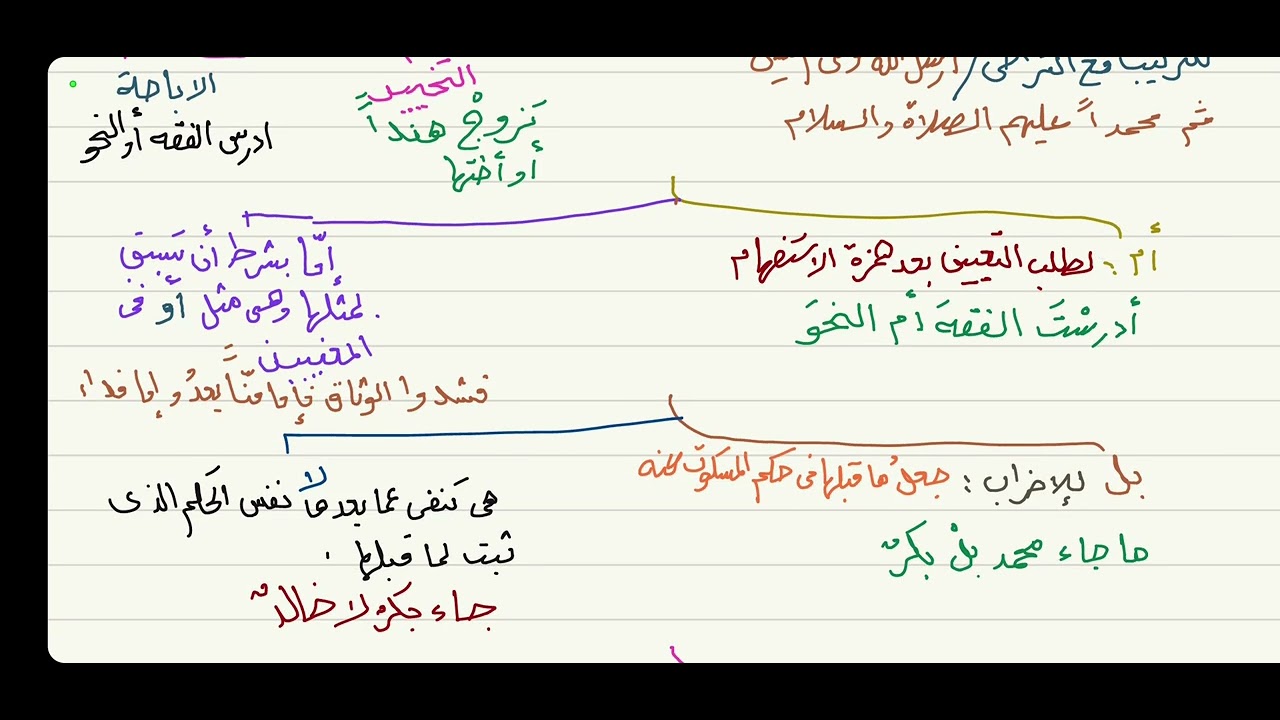 للترتيب مع التراخى / أرسل الله
ثم محمداً عليهم الصلاة والسلام
التخيير
تزوجْ هنداً
أو أختها
الاباحة
ادرس الفقه أو النحو
أم : لطلب التعيين بعد همزة الاستفهام
أدرسْتَ الفقهَ أم النحوَ
إمّا بشرط أن تسبق
بمثلها وهى مثل أو فى
المعنيين
فشدوا الوثاق فإما منّاً بعدُ وإما فداء
بل للإضراب : جعلُ ما قبلها فى حكم المسكوت عنه
ما جاء محمد بلْ بكرٌ
لا
هى تنفى عما بعدها نفس الحكم الذى
ثبت لما قبلها .
جاء بكرٌ لا خالدٌ